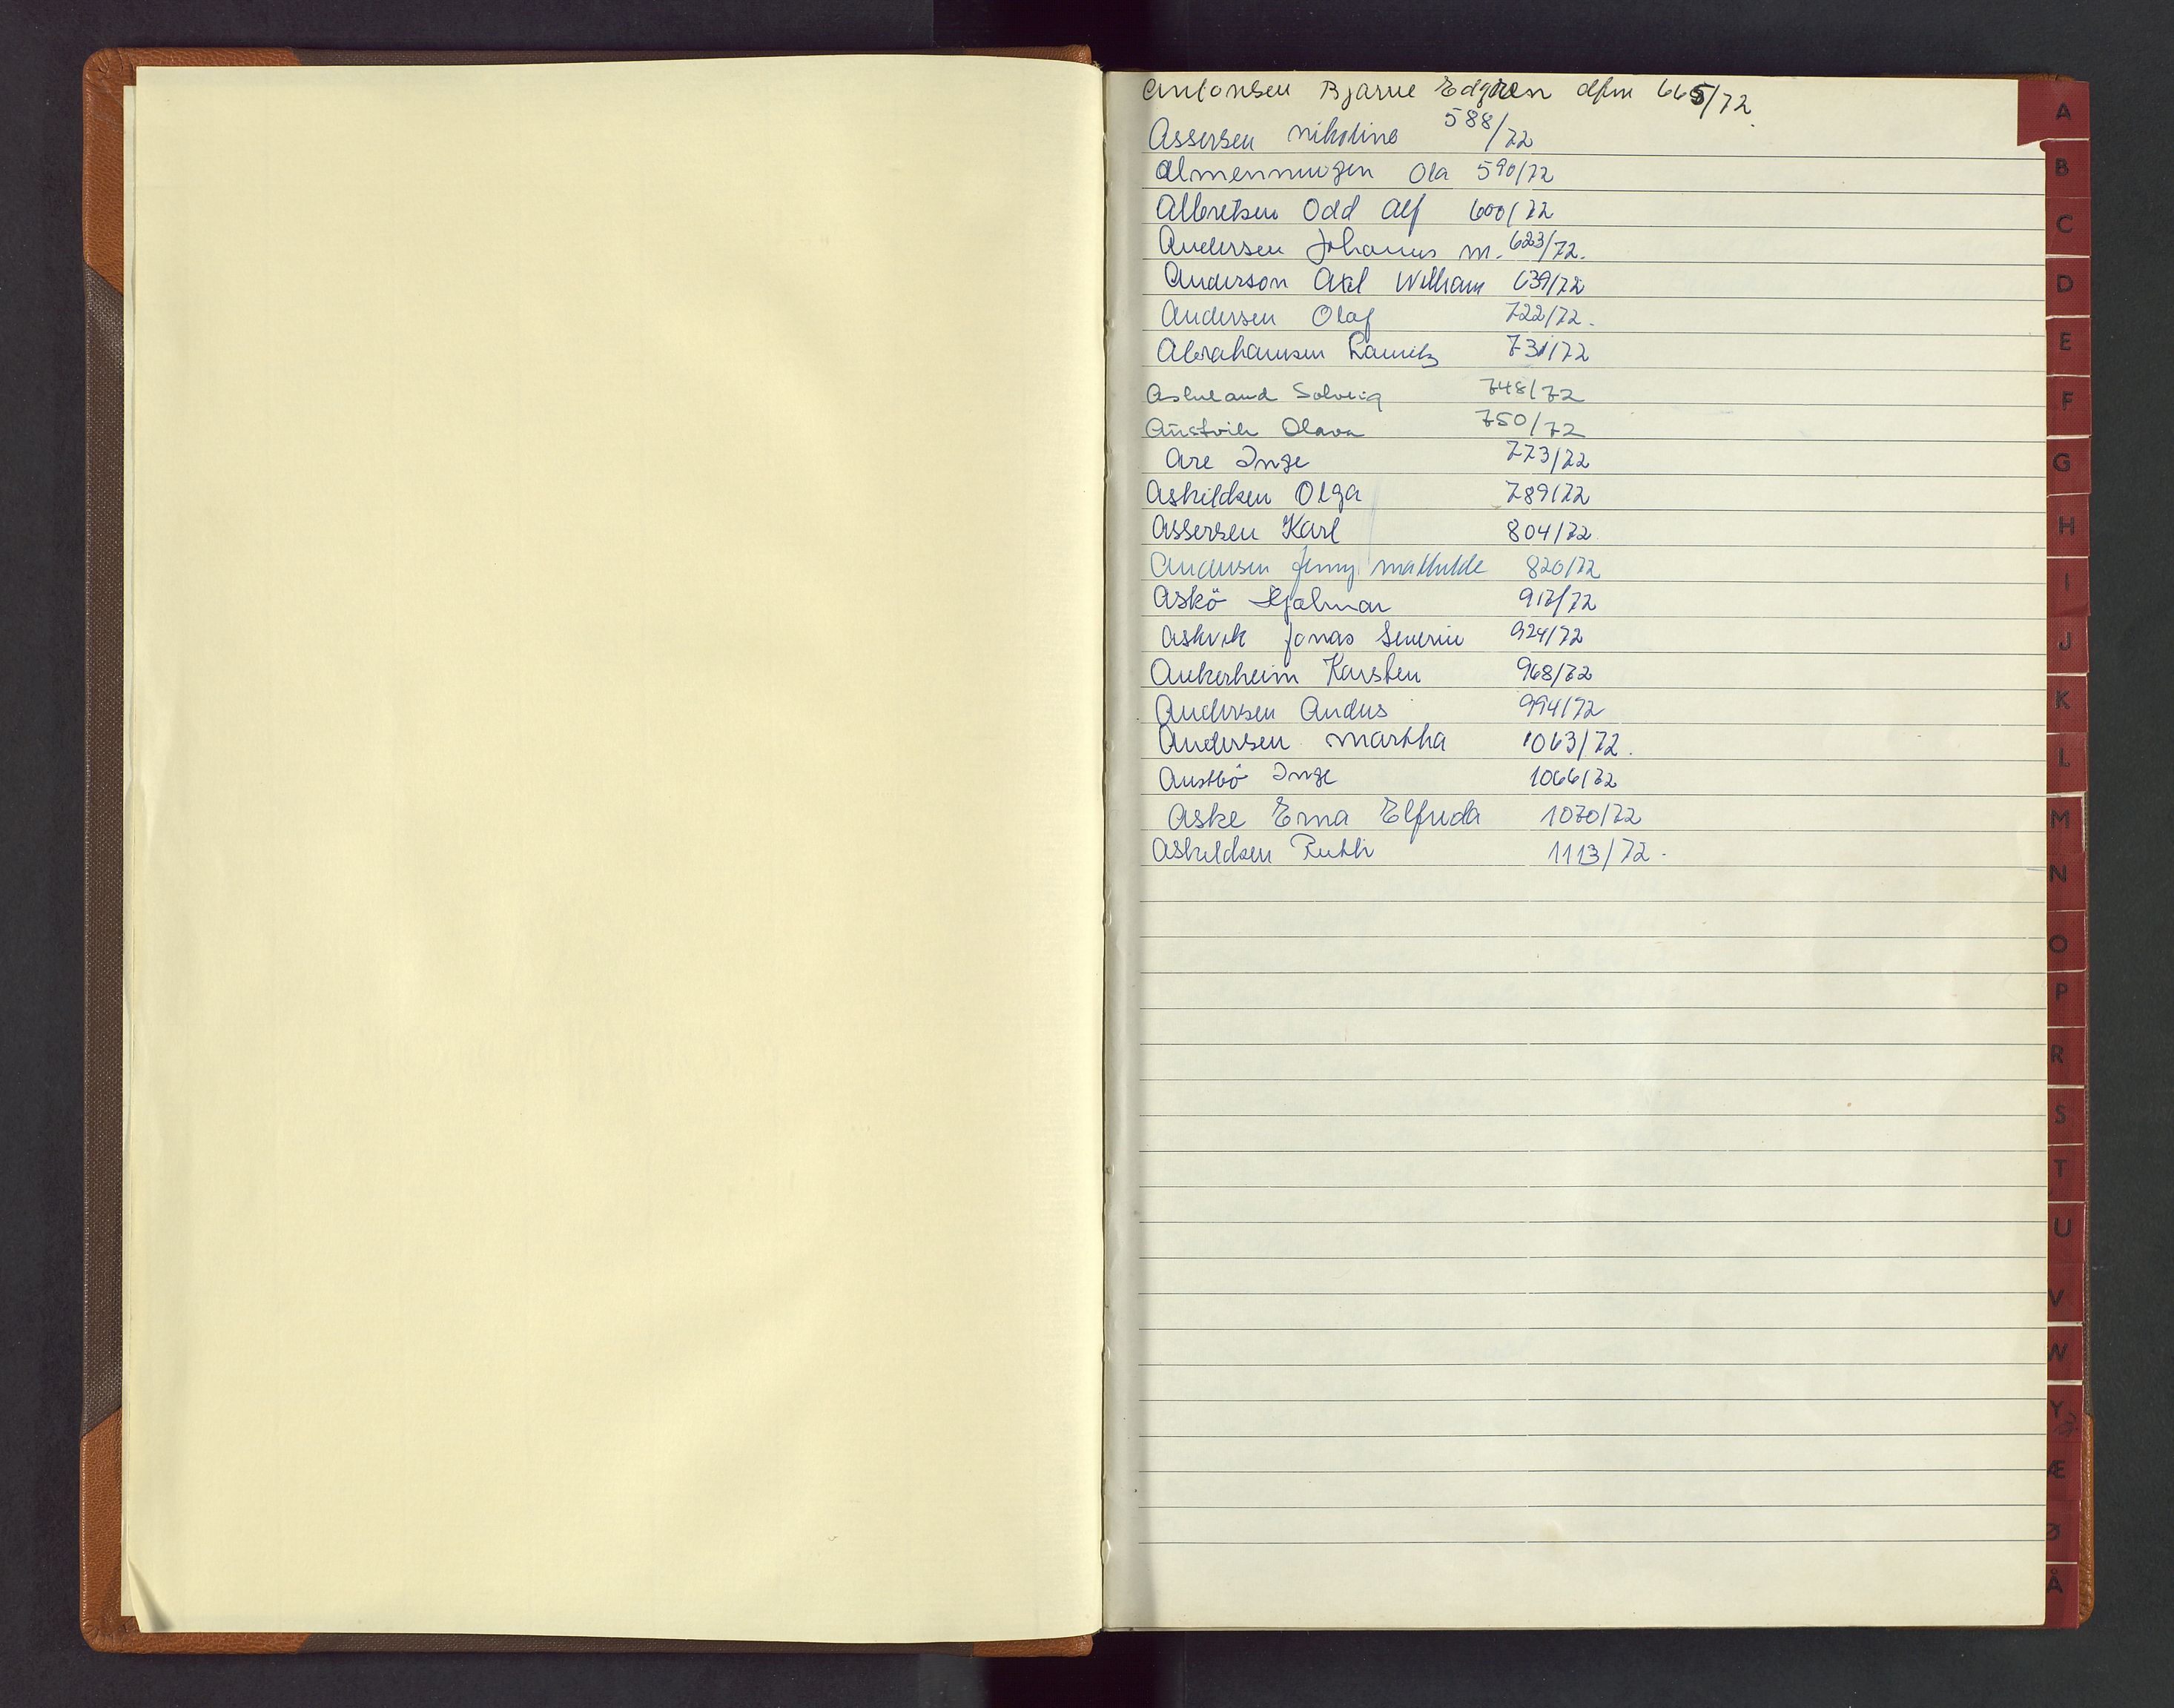 Antonsen Bjarne Edgren dfm 665/72.
Assersen Nikoline 588/72
Almenningen Ola 590/72
Albretsen Odd Alf 600/72
Andersen Johannes M. 623/72.
Anderson Axel William 639/72
Andersen Olaf 722/72.
Abrahamsen Lauritz 731/72
Askeland Solveig 748/72
Austvik Olava 750/72
Are Inge 773/72
Askildsen Olga 789/72
Assersen Karl 804/72
Andersen Jenny Mathilde 820/72
Askö Hjalmar 917/72
Askvik Jonas Severin 924/72
Ankerheim Karsten 968/72
Andersen Andus 994/72
Andersen Martha 1063/72.
Austbö Inge 1066/72
Aske Erna Elfrida 1070/72
Askildsen Ruth 1113/72.
A
B
C
D
E
F
G
H
I
J
K
L
M
N
O
P
R
S
T
U
V
W
Y
Æ
Ø
Å